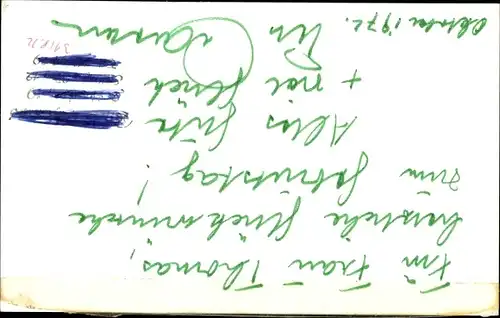 Für Frau Thomas,
herzliche Glückwünsche
zum Geburtstag!
Alles Gute
+ viel Glück
Ihr
Oktober 1972.